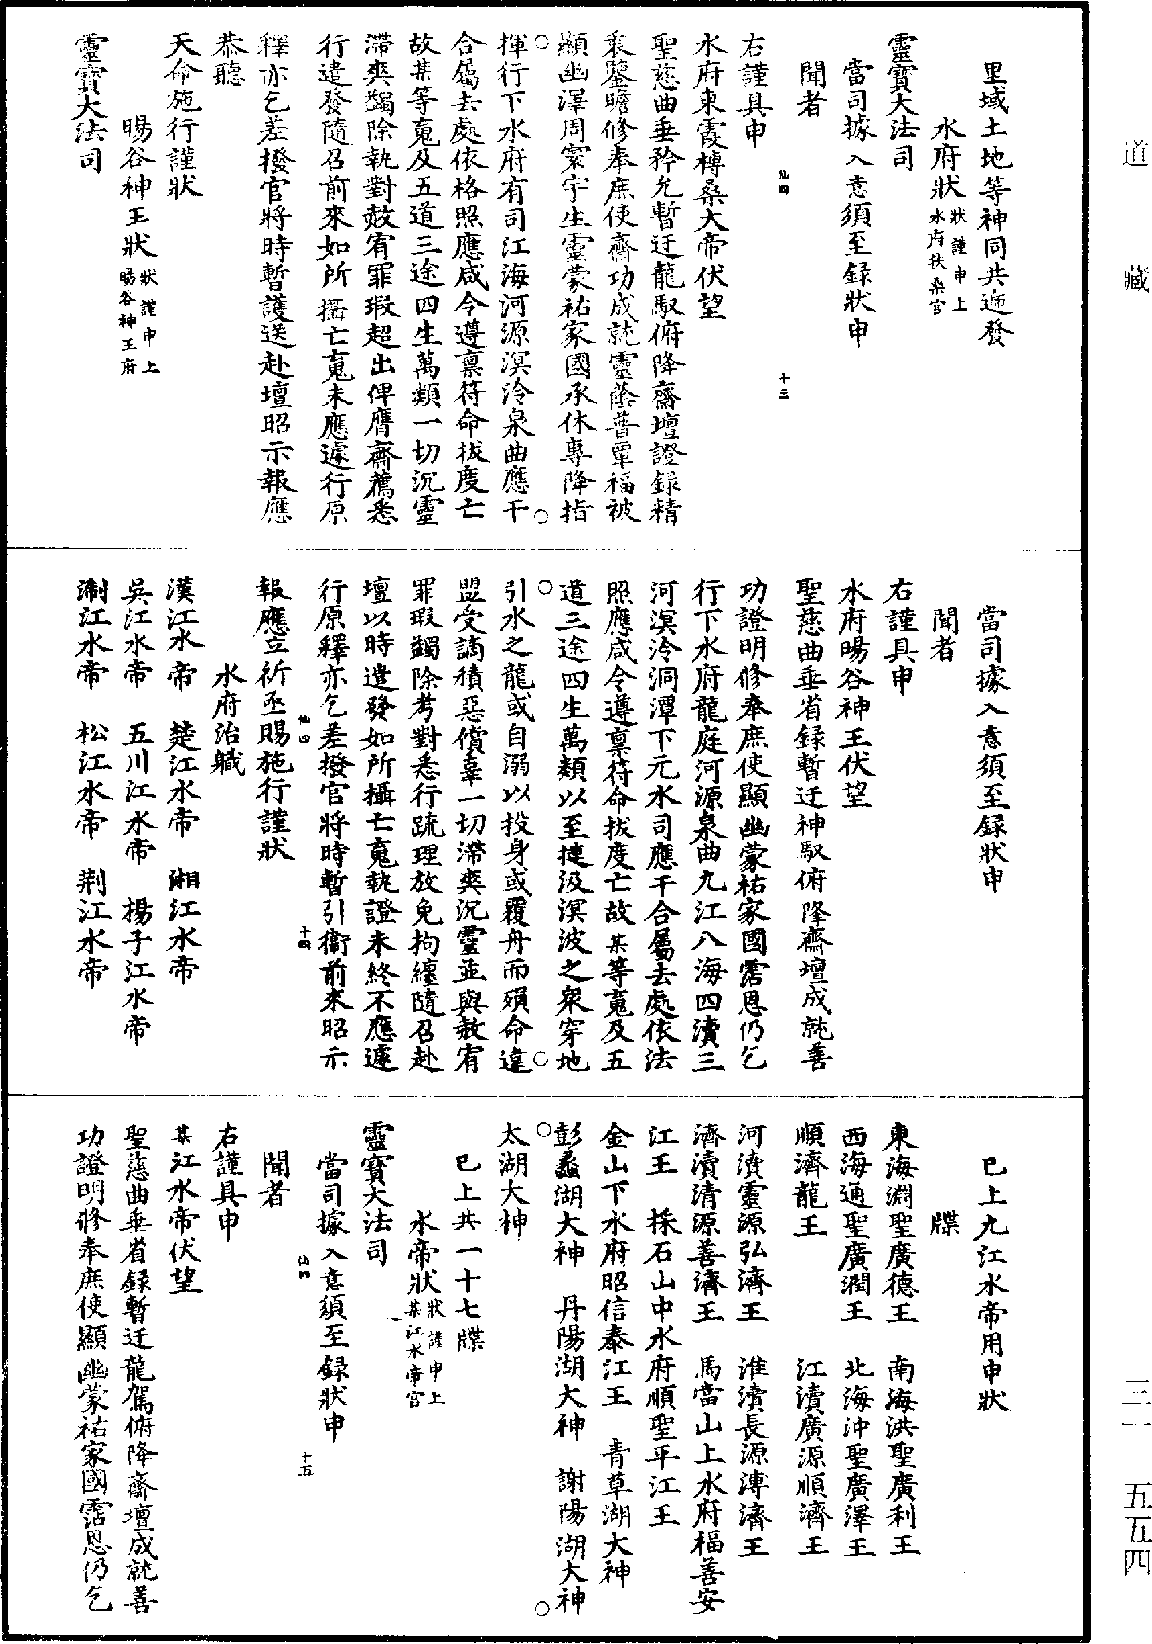 道藏
三一
五五四
里域土地等神同共遞發
水府狀狀謹申上水府扶桑宮
靈寶大法司
當司據入意須至錄狀申
聞者
右謹具申
水府東霞榑桑大帝伏望
聖慈曲垂矜允暫迂龍馭俯降齋壇證錄精
虔鑒瞻修奉庶使齋功成就靈蔭普覃福被
顯幽澤周寰宇生靈蒙祐家國承休專降指
揮行下水府有司江海河源溟泠泉曲應干
合屬去處依格照應咸令遵禀符命拔度亡
故某等䰟及五道三途四生萬類一切沉靈
滯爽蠲除執對赦宥罪瑕超出俾膺齋薦悉
行遣發隨召前來如所攝亡䰟未應遽行原
釋亦乞差撥官將時暫護送赴壇昭示報應
恭聽
天命施行謹狀
暘谷神王狀狀謹申上暘谷神王府
靈寶大法司
仙四
十三
當司據入意須至錄狀申
聞者
右謹具申
水府暘谷神王伏望
聖慈曲垂省錄暫迂神馭俯降齋壇成就善
功證明修奉庶使顯幽蒙祐家國霑恩仍乞
行下水府龍庭河源泉曲九江八海四瀆三
河溟泠洞潭下元水司應干合屬去處依法
照應咸令遵禀符命拔度亡故某等䰟及五
道三途四生萬類以至揵汲溟波之衆穿地
引水之龍或自溺以投身或覆舟而殞命違
盟受謫積惡償辜一切滯爽沉靈並與赦宥
罪瑕蠲除考對悉行疏理放免拘纏隨召赴
壇以時遣發如所攝亡䰟執證未終不應遽
行原釋亦乞差撥官將時暫引衛前來昭示
報應立祈丞賜施行謹狀
水府治職
漢江水帝 楚江水帝 湘江水帝
吳江水帝 五川江水帝 揚子江水帝
淛江水帝 松江水帝 荆江水帝
仙四
十四
已上九江水帝用申狀
牒
東海淵聖廣德王 南海洪聖廣利王
西海通聖廣潤王 北海沖聖廣澤王
順濟龍王 江瀆廣源順濟王
河瀆靈源弘濟王 淮瀆長源溥濟王
濟瀆清源善濟王 馬當山上水府福善安
江王 採石山中水府順聖平江王
金山下水府昭信泰江王 青草湖大神
彭蠡湖大神 丹陽湖大神 謝陽湖大神
太湖大神
已上共一十七牒
水帝狀狀謹申上某江水帝宮
靈寶大法司
當司據入意須至錄狀申
聞者
右謹具申
某江水帝伏望
聖慈曲垂省錄暫迂龍駕俯降齋壇成就善
功證明修奉庶使顯幽蒙祐家國霑恩仍乞
仙四
十五